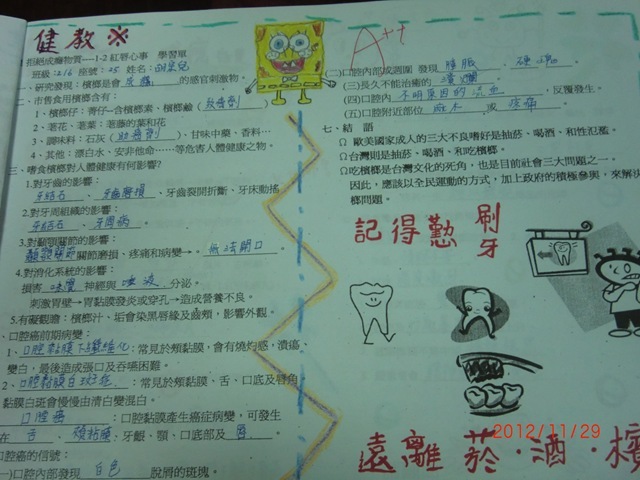 健教※
拒絕成癮物質----1-2 紅唇心事 學習單
班級:216 座號:25 姓名:
一、研究發現：檳榔是會 的感官刺激物。
二、市售食用檳榔含有：
1、檳榔仔：菁仔--含檳榔素、檳榔鹼(致癌劑)
2、荖花、荖葉：荖藤的葉和花
3、調味料：石灰(助癌劑)、甘味中藥、香料…
4、其他：漂白水、安非他命……等危害人體健康之物。
三、嗜食檳榔對人體健康有何影響?
1.對牙齒的影響：
牙結石、牙齒磨損、牙齒裂開折斷、牙床動搖
2.對牙周組織的影響：
牙結石、牙周病。
3.對顳顎關節的影響：
顳顎關節關節磨損、疼痛和病變→無法開口
4.對消化系統的影響：
損害味覺神經與唾液分泌。
刺激胃壁→胃黏膜發炎或穿孔→造成營養不良。
5.有礙觀瞻：檳榔汁、垢會染黑唇緣及齒頰，影響外觀。
口腔癌前期病變：
1、口腔黏膜下纖維化：常見於頰黏膜，會有燒灼感，潰瘍
變白，最後造成張口及吞嚥困難。
2、口腔黏膜白斑症：常見於頰黏膜、舌、口底及唇角
黏膜白斑會慢慢由清白變混白。
口腔癌：口腔黏膜產生癌症病變，可發生
在舌、頰黏膜、牙齦、顎、口底部及唇。
口腔癌的信號：
(一)口腔內部發現白色脫屑的斑塊。
A++
(二)口腔內部或週圍 發現腫脹、硬塊
(三)長久不能治癒的潰爛。
(四)口腔內不明原因的流血，反覆發生。
(五)口腔附近部位麻木或疼痛。
七、結 語
Ω 歐美國家成人的三大不良嗜好是抽菸、喝酒、和性氾濫。
Ω台灣則是抽菸、喝酒、和吃檳榔。
Ω吃檳榔是台灣文化的死角，也是目前社會三大問題之一。
因此，應該以全民運動的方式，加上政府的積極參與，來解決
榔問題。
記得勤刷牙
遠離菸·酒·檳
2012/11/29